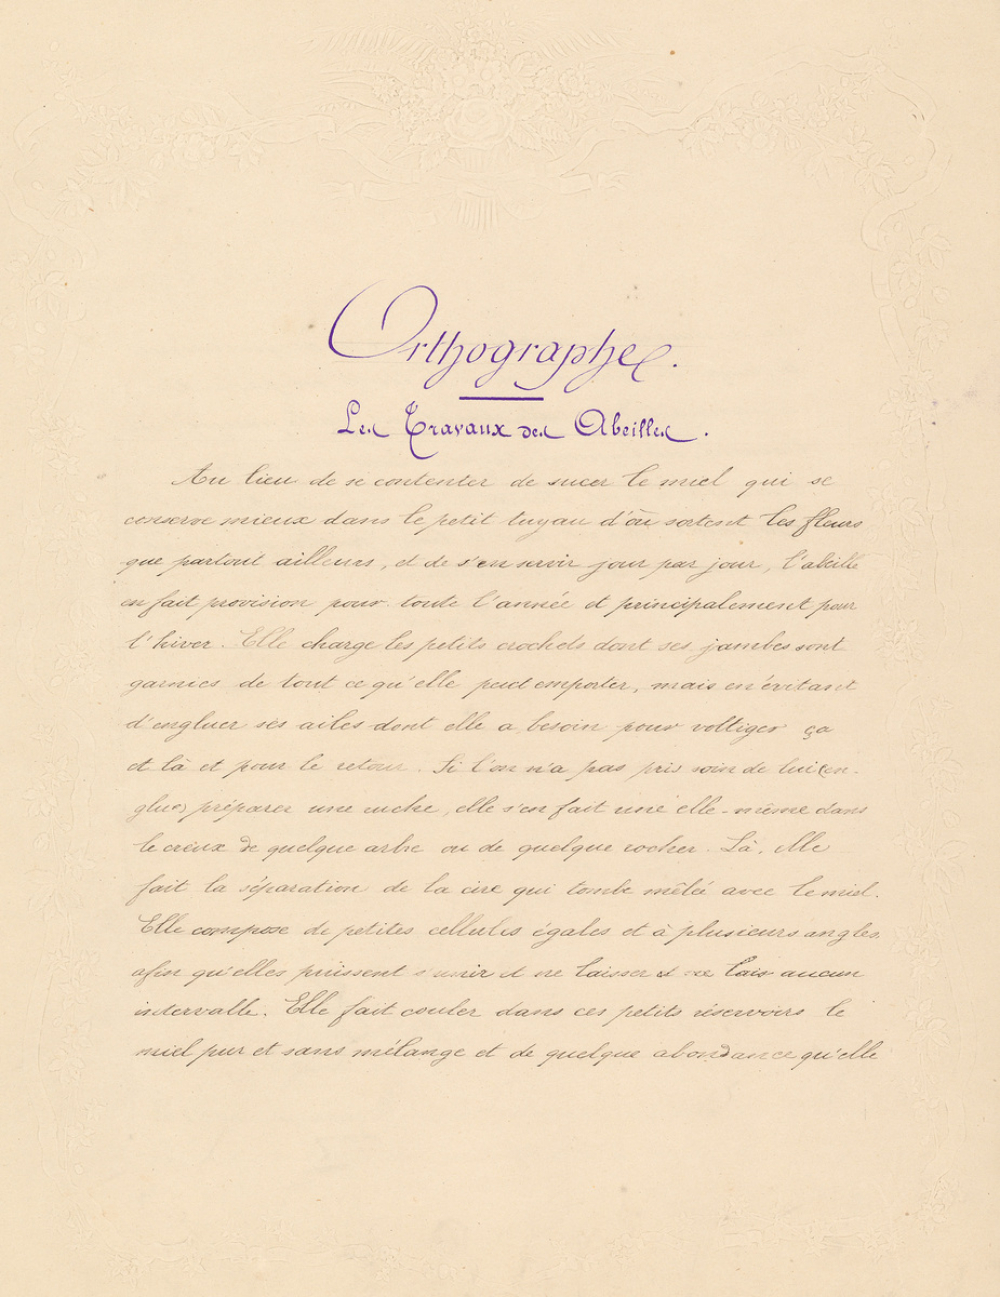 Orthographe.
Les Travaux des Abeilles.
Au lieu de se contenter de sucer le miel qui se
conserve mieux dans le petit tuyau d'où sortent les fleurs
que partout ailleurs, et de s'en servir jour par jour, l'abeille
en fait provision pour toute l'année et principalement pour
l'hiver. Elle charge les petits crochets dont ses jambes sont
garnies de tout ce qu'elle peut emporter, mais en évitant
d'engluer ses ailes dont elle a besoin pour voltiger ça
et là et pour le retour. Si l'on n'a pas pris soin de lui (en-
gluer) préparer une ruche, elle s'en fait une elle-même dans
le creux de quelque arbre ou de quelque rocher. Là, elle
fait la séparation de la cire qui tombe mêlée avec le miel.
Elle compose de petites cellules égales et à plusieurs angles,
afin qu'elles puissent s'unir et ne laisser aucun
intervalle. Elle fait couler dans ces petits réservoirs le
miel pur et sans mélange et de quelque abondance qu'elle